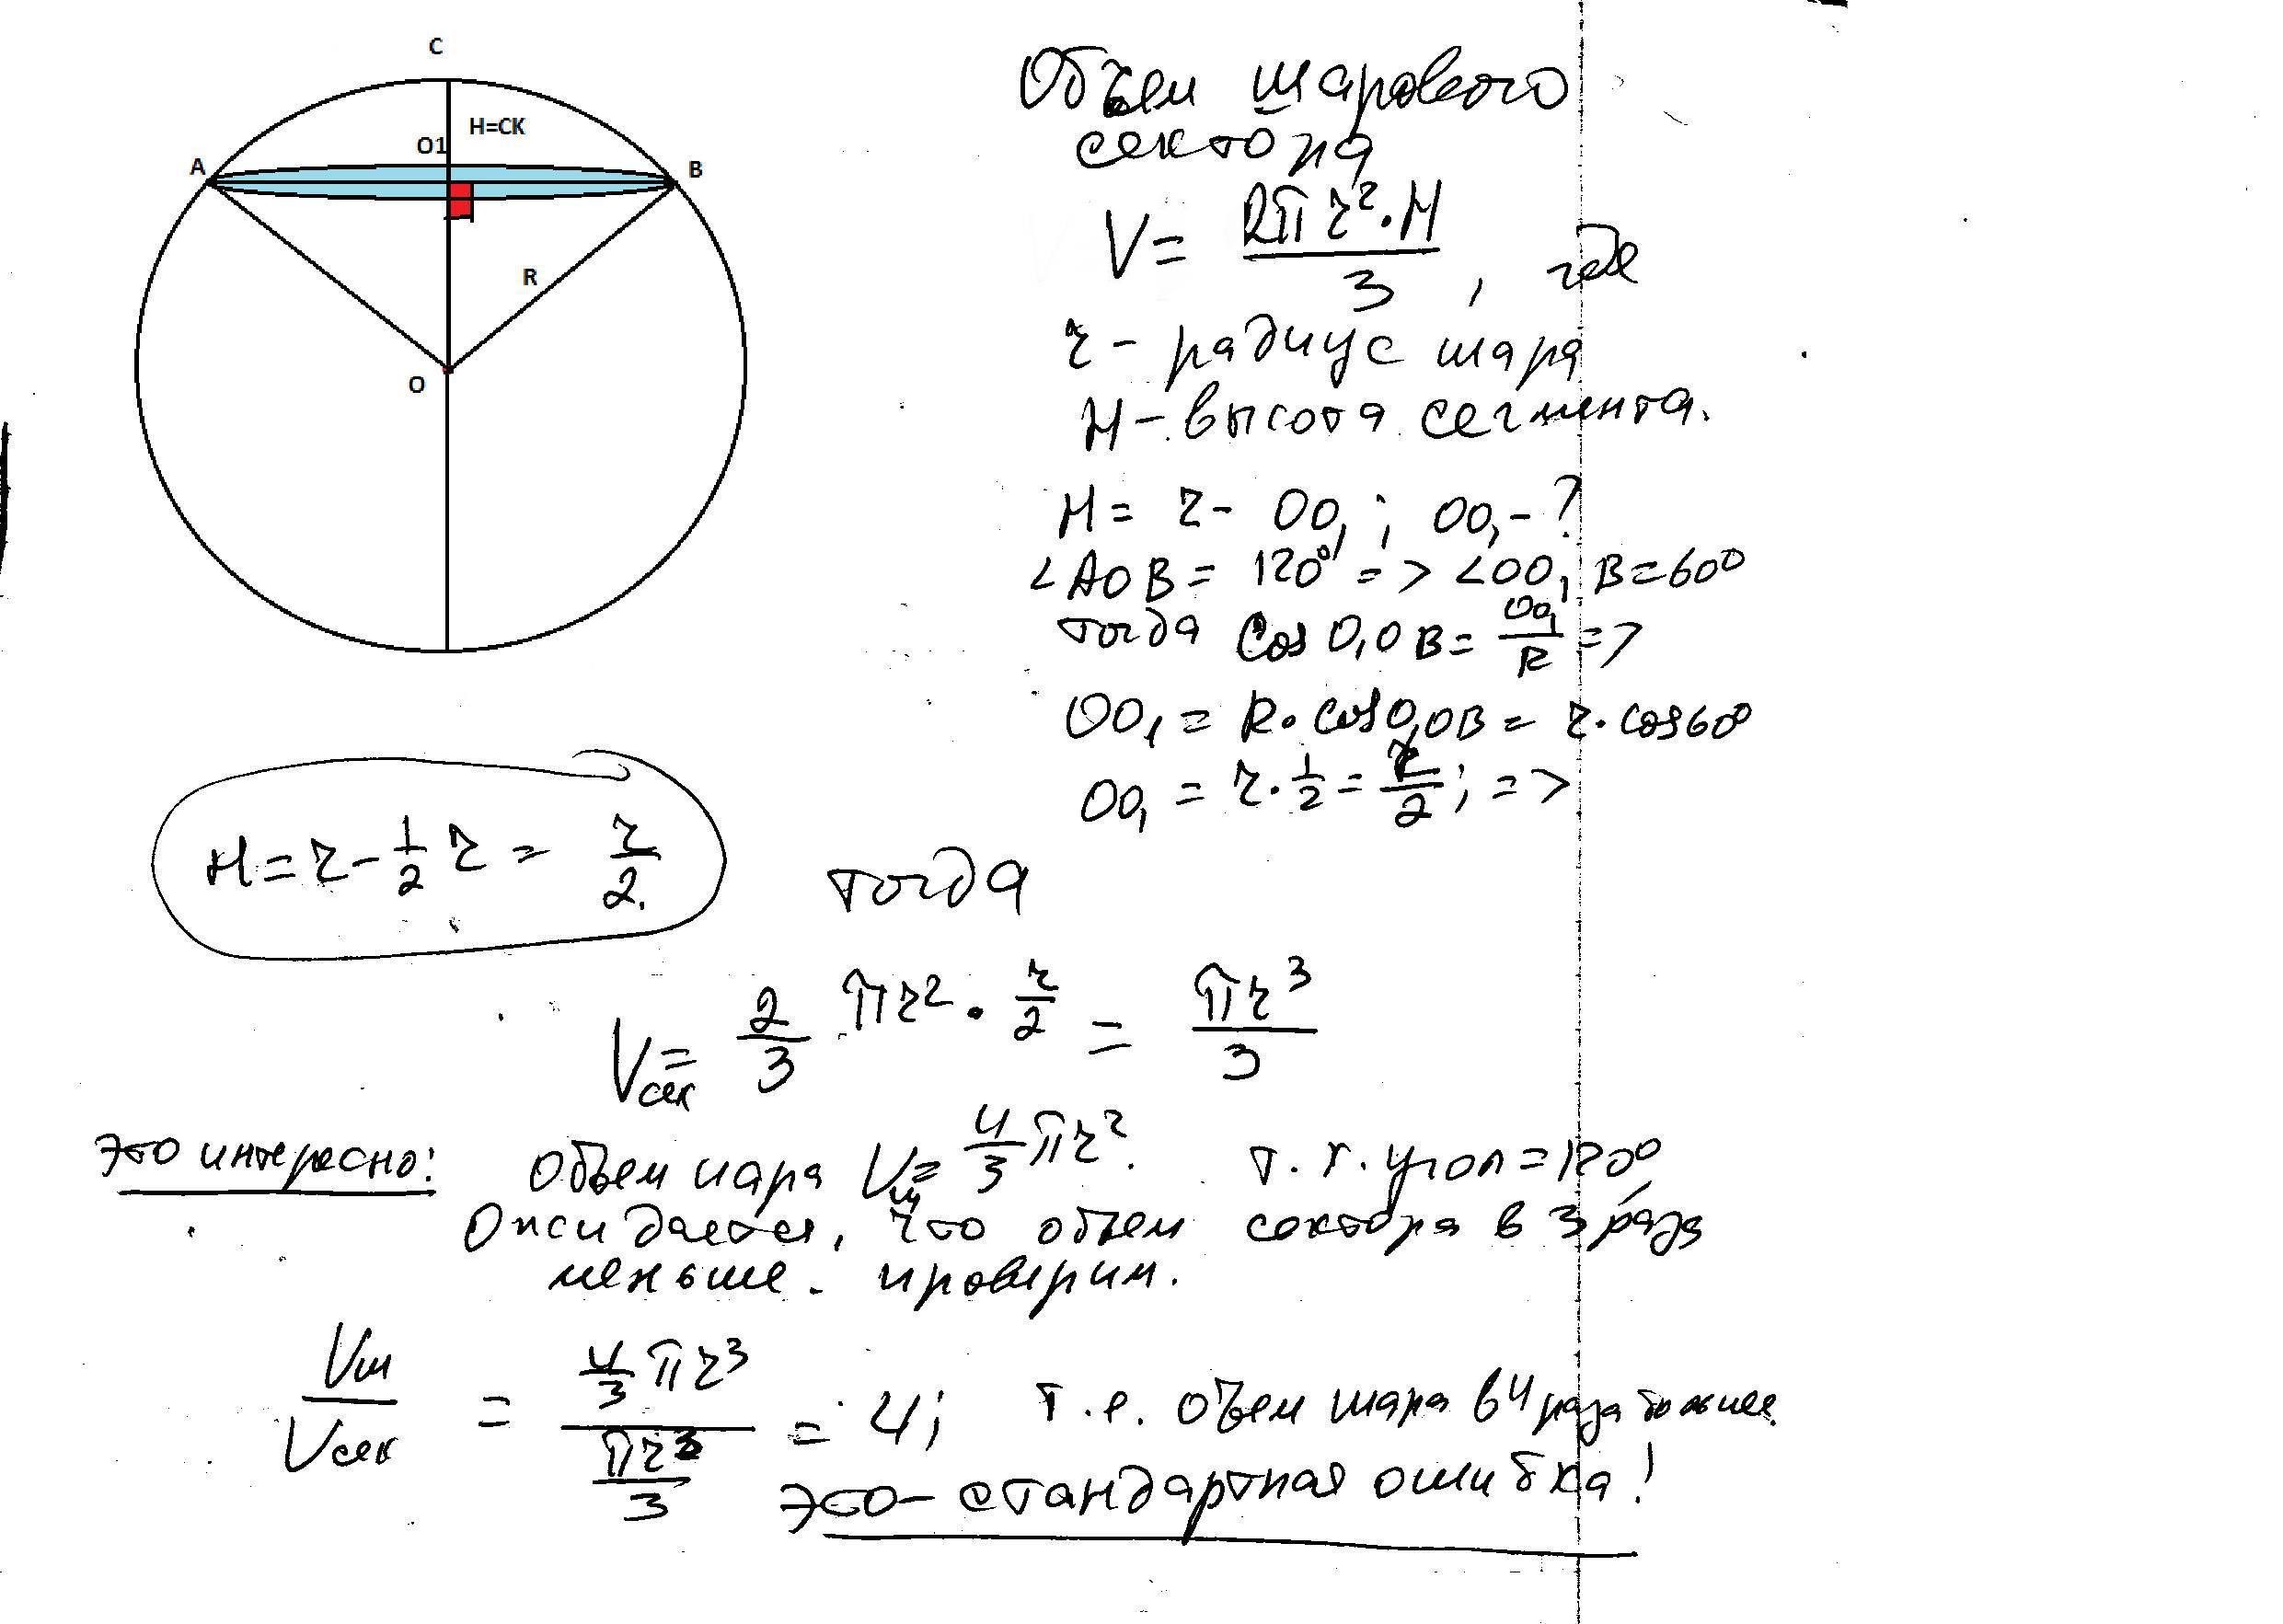 C
H=CK
O1
A
B
R
O
Объем шарового
сектора
V = 2πr²·H / 3, где
r - радиус шара
H - высота сегмента.
H = r - OO₁; OO₁ - ?
∠AOB = 120° => ∠OO₁B = 60°
тогда Cos O₁OB = OO₁/R =>
OO₁ = R·cos O₁OB = r·cos60°
OO₁ = r·1/2 = r/2; =>
H = r - 1/2 r = r/2.
тогда
Vсек = 2/3 πr²·r/2 = πr³/3
Это интересно: Объем шара Vш = 4/3 πr². т.к. угол = 120°
Ожидается, что объем сектора в 3 раза
меньше. проверим.
Vш/Vсек = (4/3 πr³)/(πr³/3) = 4; т.е. объем шара в 4 раза больше.
Это - стандартная ошибка!